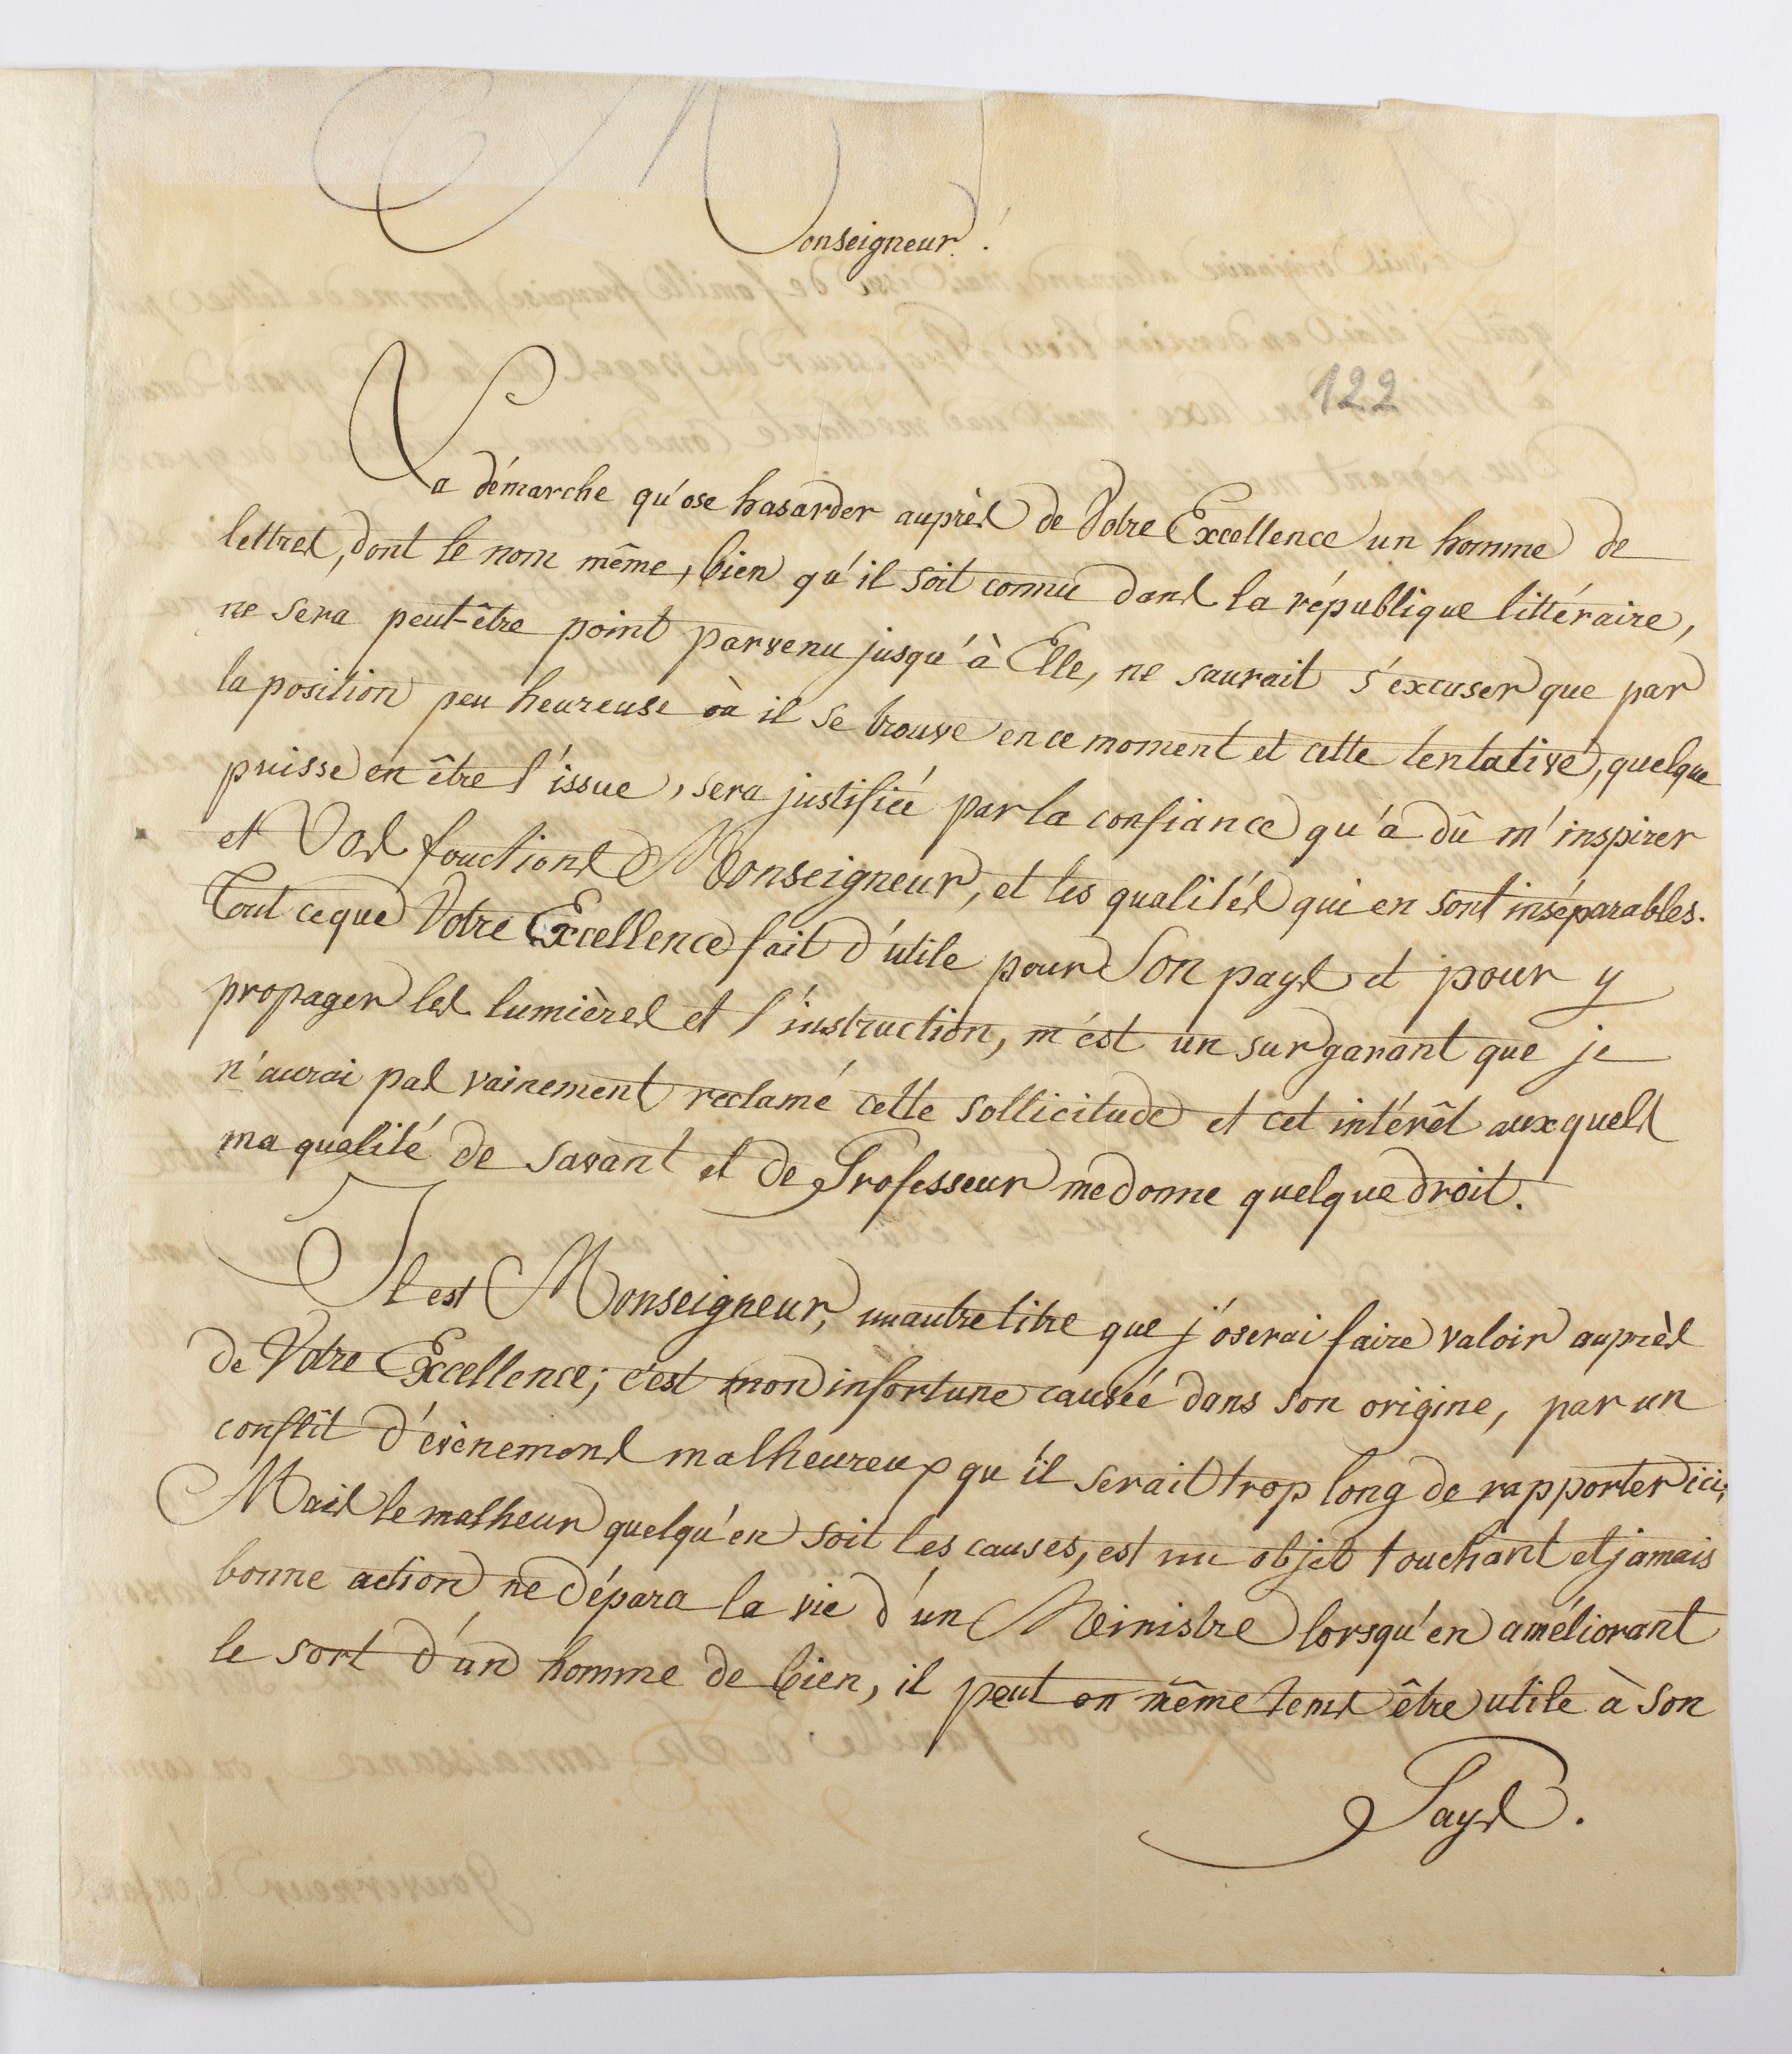 Monseigneur!
122
La démarche qu'ose hasarder auprès de Votre Excellence un homme de
lettres, dont le nom même, bien qu'il soit connu dans la république littéraire,
ne sera peut-être point parvenu jusqu'à Elle, ne saurait s'excuser que par
la position peu heureuse où il se trouve en ce moment et cette tentative, quelque
puisse en être l'issue, sera justifiée par la confiance qu'a dû m'inspirer
et Vos fonctions Monseigneur, et les qualités qui en sont inséparables.
Tout ce que Votre Excellence fait d'utile pour Son pays et pour y
propager les lumières et l'instruction, m'est un sur garant que je
n'aurai pas vainement reclamé cette sollicitude et cet intérêt auxquels
ma qualité de savant et de Professeur me donne quelque droit.
Il est Monseigneur, un autre titre que j'oserai faire valoir auprès
de Votre Excellence; c'est mon infortune causée dans son origine, par un
conflit d'évènemens malheureux qu'il serait trop long de rapporter ici;
Mais le malheur quelqu'en soit les causes, est un objet touchant et jamais
bonne action ne dépara la vie d'un Ministre lorsqu'en améliorant
le sort d'un homme de bien, il peut en même tems être utile à son
Pays.